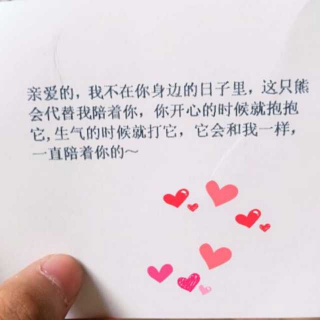 亲爱的，我不在你身边的日子里，这只熊
会代替我陪着你，你开心的时候就抱抱
它,生气的时候就打它，它会和我一样，
一直陪着你的～